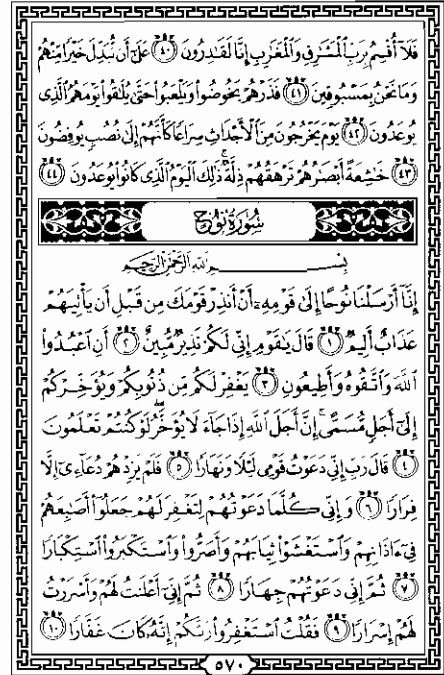 فَلَآ أُقْسِمُ بِرَبِّ ٱلْمَشَٰرِقِ وَٱلْمَغَٰرِبِ إِنَّا لَقَٰدِرُونَ ٤٠ عَلَىٰٓ أَن نُّبَدِّلَ خَيْرًا مِّنْهُمْ
وَمَا نَحْنُ بِمَسْبُوقِينَ ٤١ فَذَرْهُمْ يَخُوضُوا۟ وَيَلْعَبُوا۟ حَتَّىٰ يُلَٰقُوا۟ يَوْمَهُمُ ٱلَّذِى
يُوعَدُونَ ٤٢ يَوْمَ يَخْرُجُونَ مِنَ ٱلْأَجْدَاثِ سِرَاعًا كَأَنَّهُمْ إِلَىٰ نُصُبٍ يُوفِضُونَ
٤٣ خَٰشِعَةً أَبْصَٰرُهُمْ تَرْهَقُهُمْ ذِلَّةٌ ۚ ذَٰلِكَ ٱلْيَوْمُ ٱلَّذِى كَانُوا۟ يُوعَدُونَ ٤٤
سُورَةُ نُوحٍ
بِسْمِ ٱللَّهِ ٱلرَّحْمَٰنِ ٱلرَّحِيمِ
إِنَّآ أَرْسَلْنَا نُوحًا إِلَىٰ قَوْمِهِۦٓ أَنْ أَنذِرْ قَوْمَكَ مِن قَبْلِ أَن يَأْتِيَهُمْ
عَذَابٌ أَلِيمٌ ١ قَالَ يَٰقَوْمِ إِنِّى لَكُمْ نَذِيرٌ مُّبِينٌ ٢ أَنِ ٱعْبُدُوا۟
ٱللَّهَ وَٱتَّقُوهُ وَأَطِيعُونِ ٣ يَغْفِرْ لَكُم مِّن ذُنُوبِكُمْ وَيُؤَخِّرْكُمْ
إِلَىٰٓ أَجَلٍ مُّسَمًّى ۚ إِنَّ أَجَلَ ٱللَّهِ إِذَا جَآءَ لَا يُؤَخَّرُ ۖ لَوْ كُنتُمْ تَعْلَمُونَ
٤ قَالَ رَبِّ إِنِّى دَعَوْتُ قَوْمِى لَيْلًا وَنَهَارًا ٥ فَلَمْ يَزِدْهُمْ دُعَآءِىٓ إِلَّا
فِرَارًا ٦ وَإِنِّى كُلَّمَا دَعَوْتُهُمْ لِتَغْفِرَ لَهُمْ جَعَلُوٓا۟ أَصَٰبِعَهُمْ
فِىٓ ءَاذَانِهِمْ وَٱسْتَغْشَوْا۟ ثِيَابَهُمْ وَأَصَرُّوا۟ وَٱسْتَكْبَرُوا۟ ٱسْتِكْبَارًا
٧ ثُمَّ إِنِّى دَعَوْتُهُمْ جِهَارًا ٨ ثُمَّ إِنِّىٓ أَعْلَنتُ لَهُمْ وَأَسْرَرْتُ
لَهُمْ إِسْرَارًا ٩ فَقُلْتُ ٱسْتَغْفِرُوا۟ رَبَّكُمْ إِنَّهُۥ كَانَ غَفَّارًا ١٠
٥٧٠